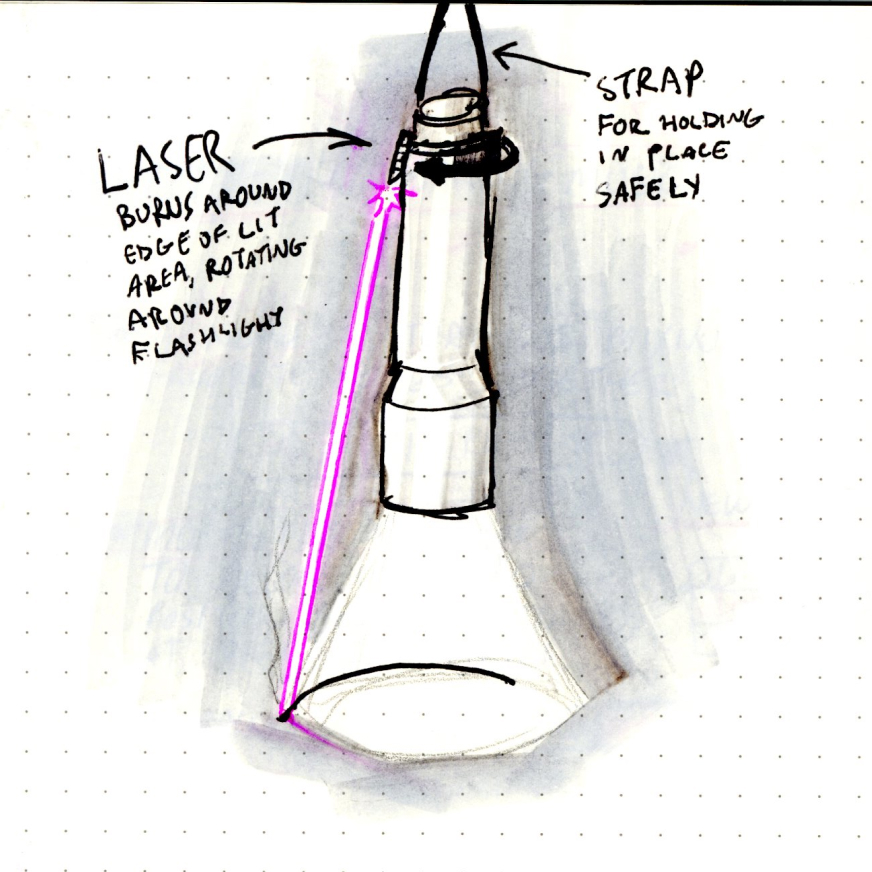 LASER
BURNS AROUND
EDGE OF LIT
AREA, ROTATING
AROUND
FLASHLIGHT
STRAP
FOR HOLDING
IN PLACE
SAFELY